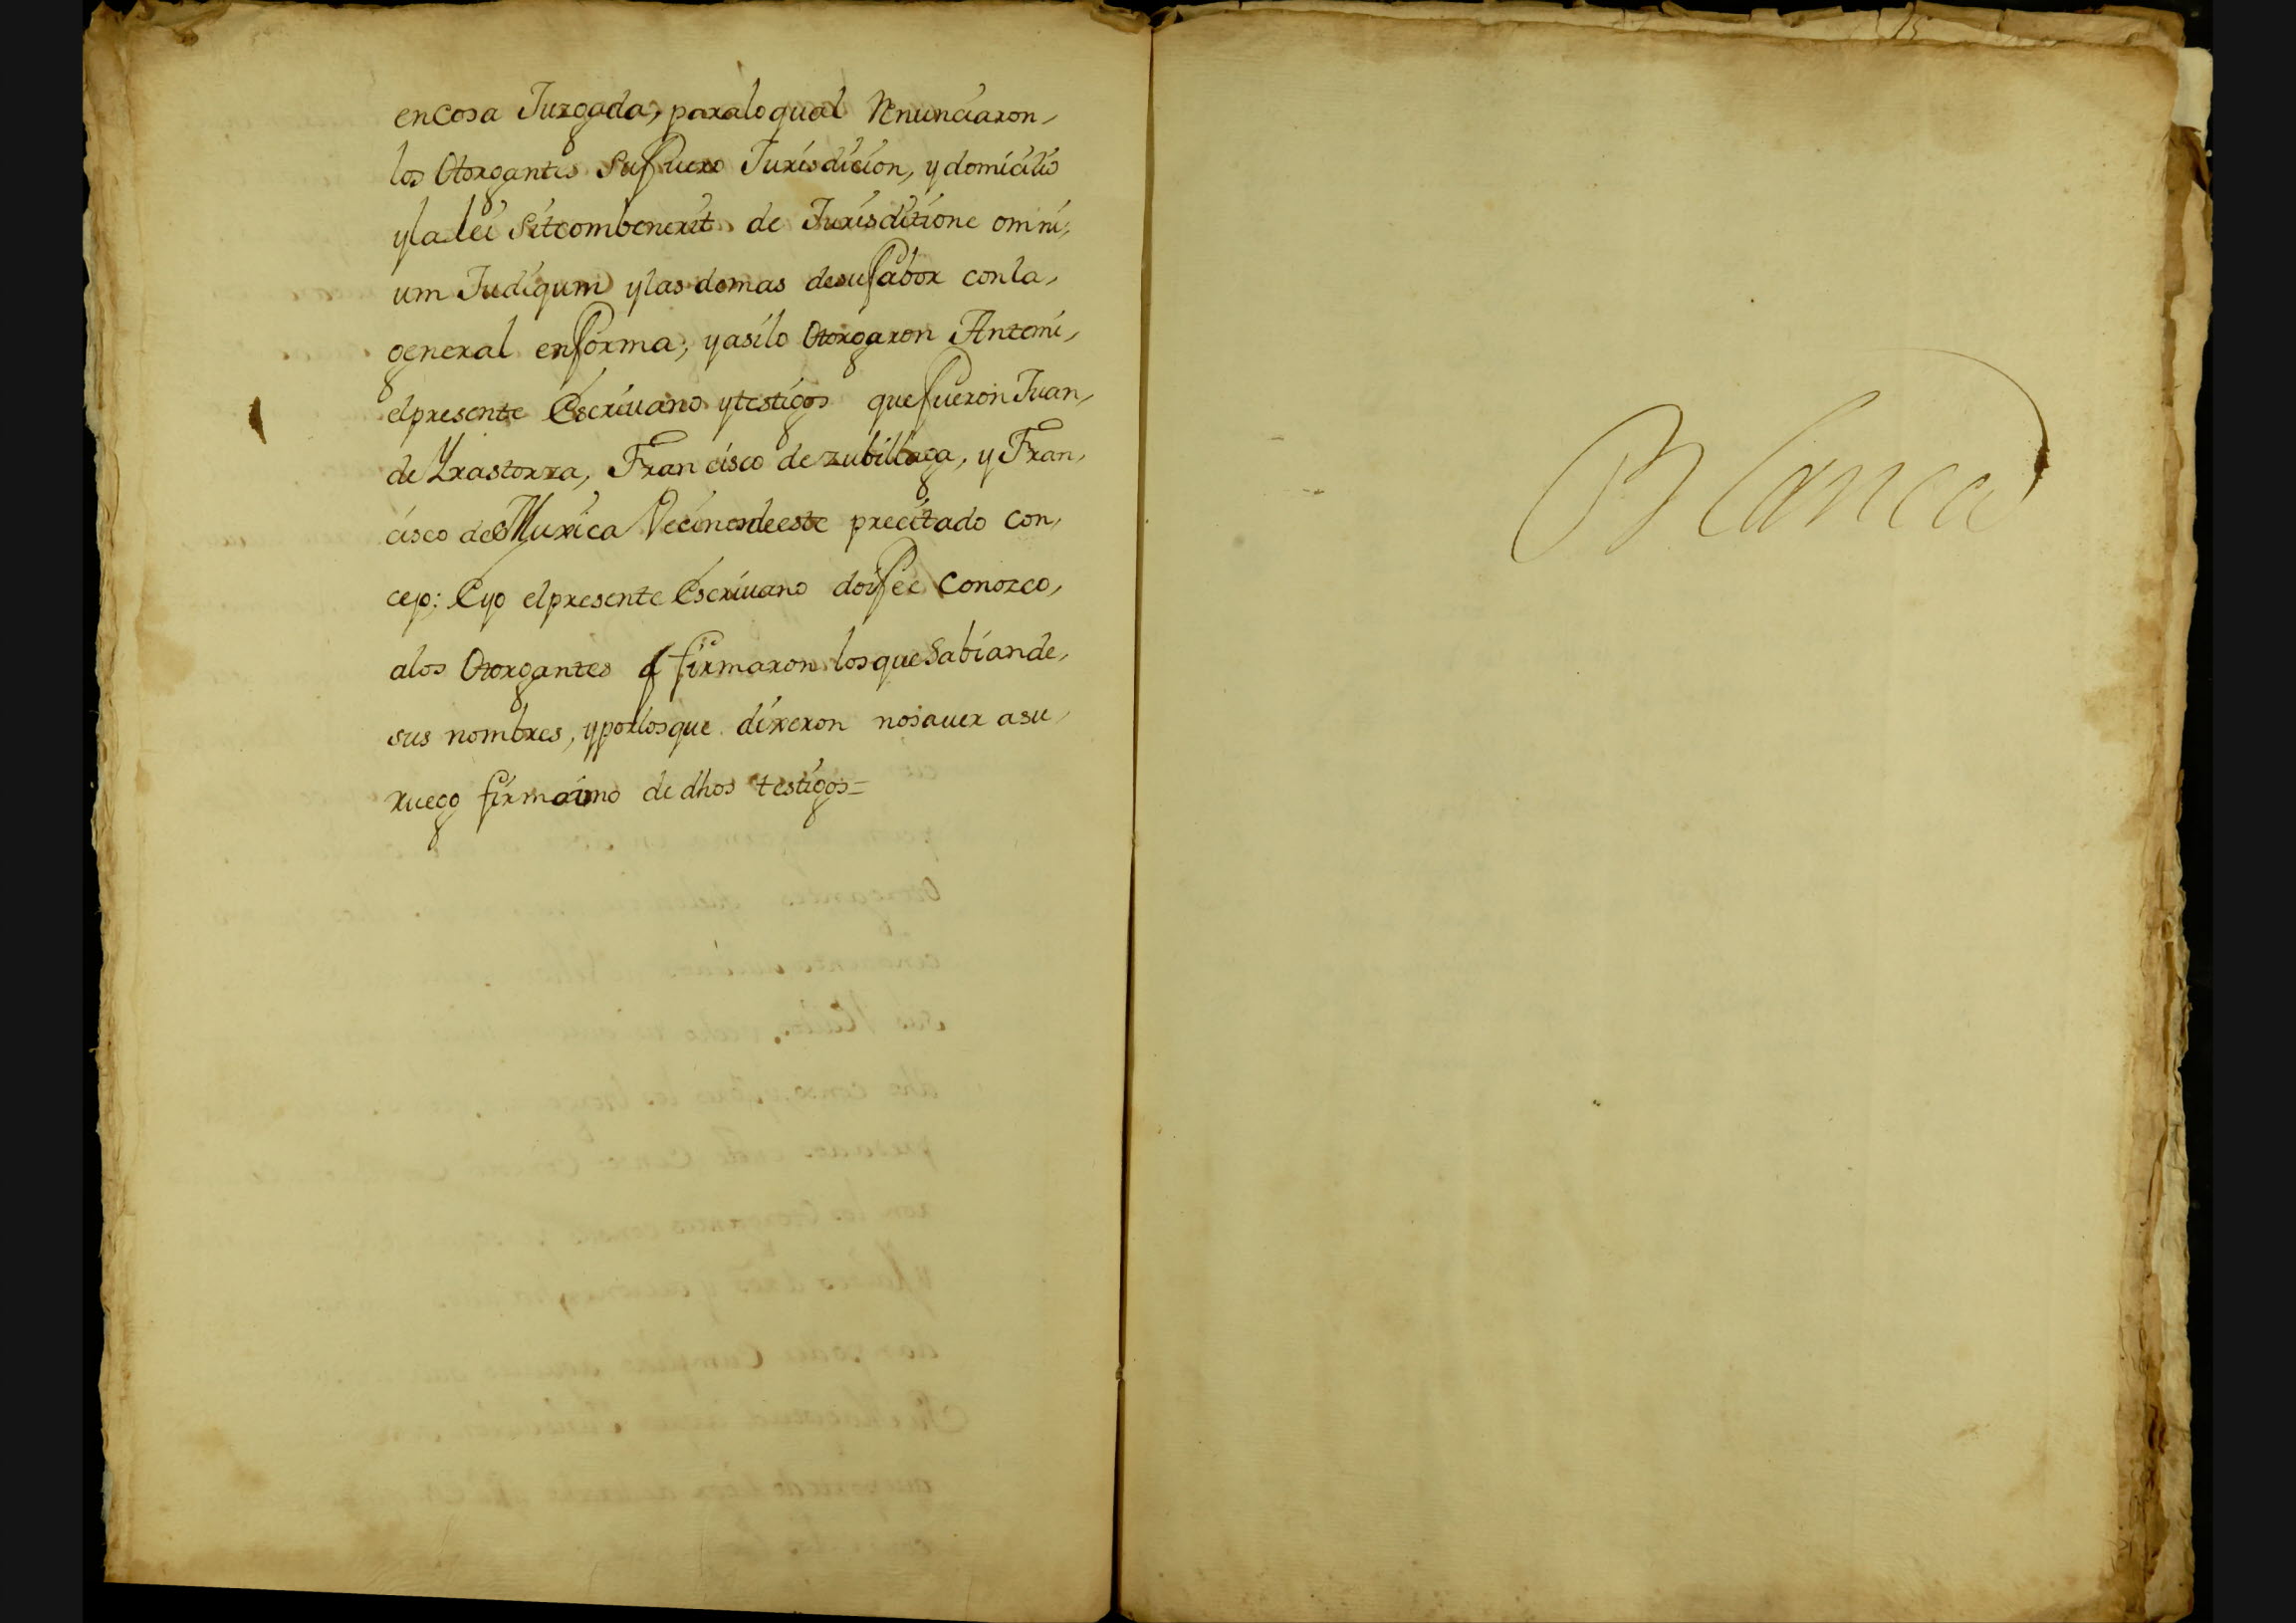 en cosa Juzgada, para lo qual Renunciaron,
los Otorgantes su fuero Jurisdicion, y domicilio
y la lei sit combenerit de Jurisditione omni,
um Judiqum y las demas de su fabor con la,
general en forma, y asi lo Otorgaron Ante mi,
el presente Escriuano y testigos que fueron Juan,
de Yrastorza, Francisco de zubillaga, y Fran,
cisco de Muxica Vecinos de este precitado con,
cejo; E yo el presente Escriuano doi fee conozco,
a los Otorgantes q firmaron los que Sabian de,
sus nombres, y por los que dixeron no sauer a su,
ruego firmo uno de dhos testigos=
Blanca